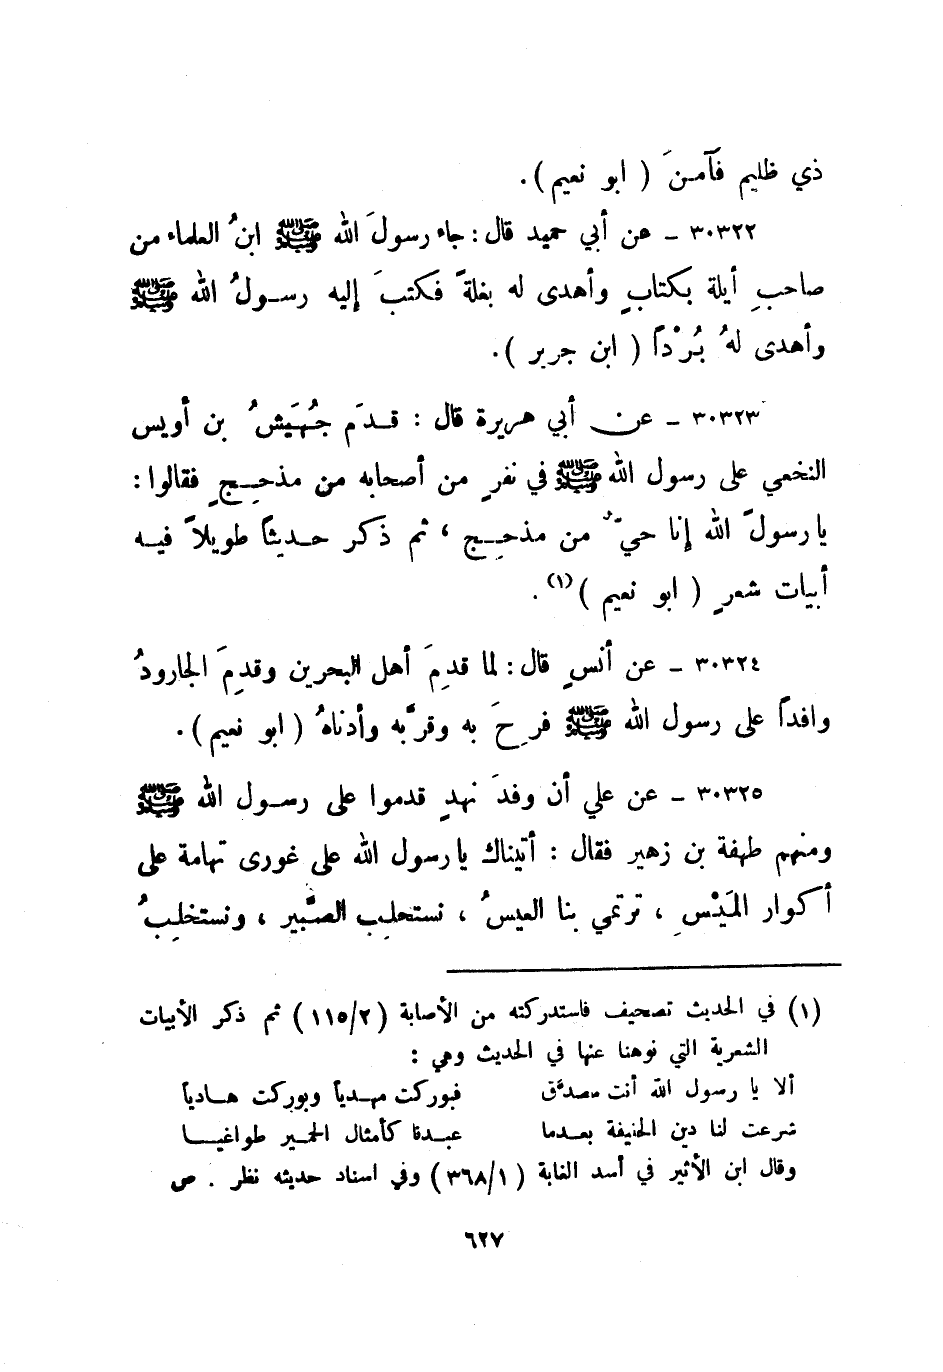 ذي ظليم فآمنَ ( ابو نعيم ).
٣٠٣٢٢ ـ عن أبي حميد قال : جاء رسولَ الله ﷺ ابنُ العلماء من
صاحبِ أيلة بكتابٍ وأهدى له بغلةً فكتبَ إليه رسولُ الله ﷺ
وأهدى لهُ بُرْداً ( ابن جرير ).
٣٠٣٢٣ ـ عن أبي هريرة قال : قدمَ جُهَيشُ بن أويس
النخعي على رسول الله ﷺ في نفرٍ من أصحابه من مذحجٍ فقالوا :
يا رسولَ الله إنا حيٌّ من مذحجٍ ، ثم ذكر حديثاً طويلاً فيه
أبيات شعرٍ ( ابو نعيم )(١) .
٣٠٣٢٤ ـ عن أنسٍ قال : لما قدمَ أهل البحرين وقدمَ الجارودُ
وافداً على رسول الله ﷺ فرحَ به وقرَّبه وأدناهُ ( ابو نعيم ).
٣٠٣٢٥ ـ عن علي أن وفدَ نهدٍ قدموا على رسول الله ﷺ
ومنهم طهفة بن زهير فقال : أتيناك يا رسول الله على غورى تهامة على
أكوار المَيْسِ ، ترتمي بنا العيسُ ، نستحلب الصَّبير ، ونستخلبُ
(١) في الحديث تصحيف فاستدركته من الأصابة (٢/١١٥) ثم ذكر الأبيات
الشعرية التي نوهنا عنها في الحديث وهي :
ألا يا رسول الله أنت مصدَّق فبوركت مهدياً وبوركت هادياً
شرعت لنا دين الحنيفة بعدما عبدنا كأمثال الحمير طواغيا
وقال ابن الأثير في أسد الغابة (١/٣٦٨) وفي اسناد حديثه نظر . ص
٦٢٧